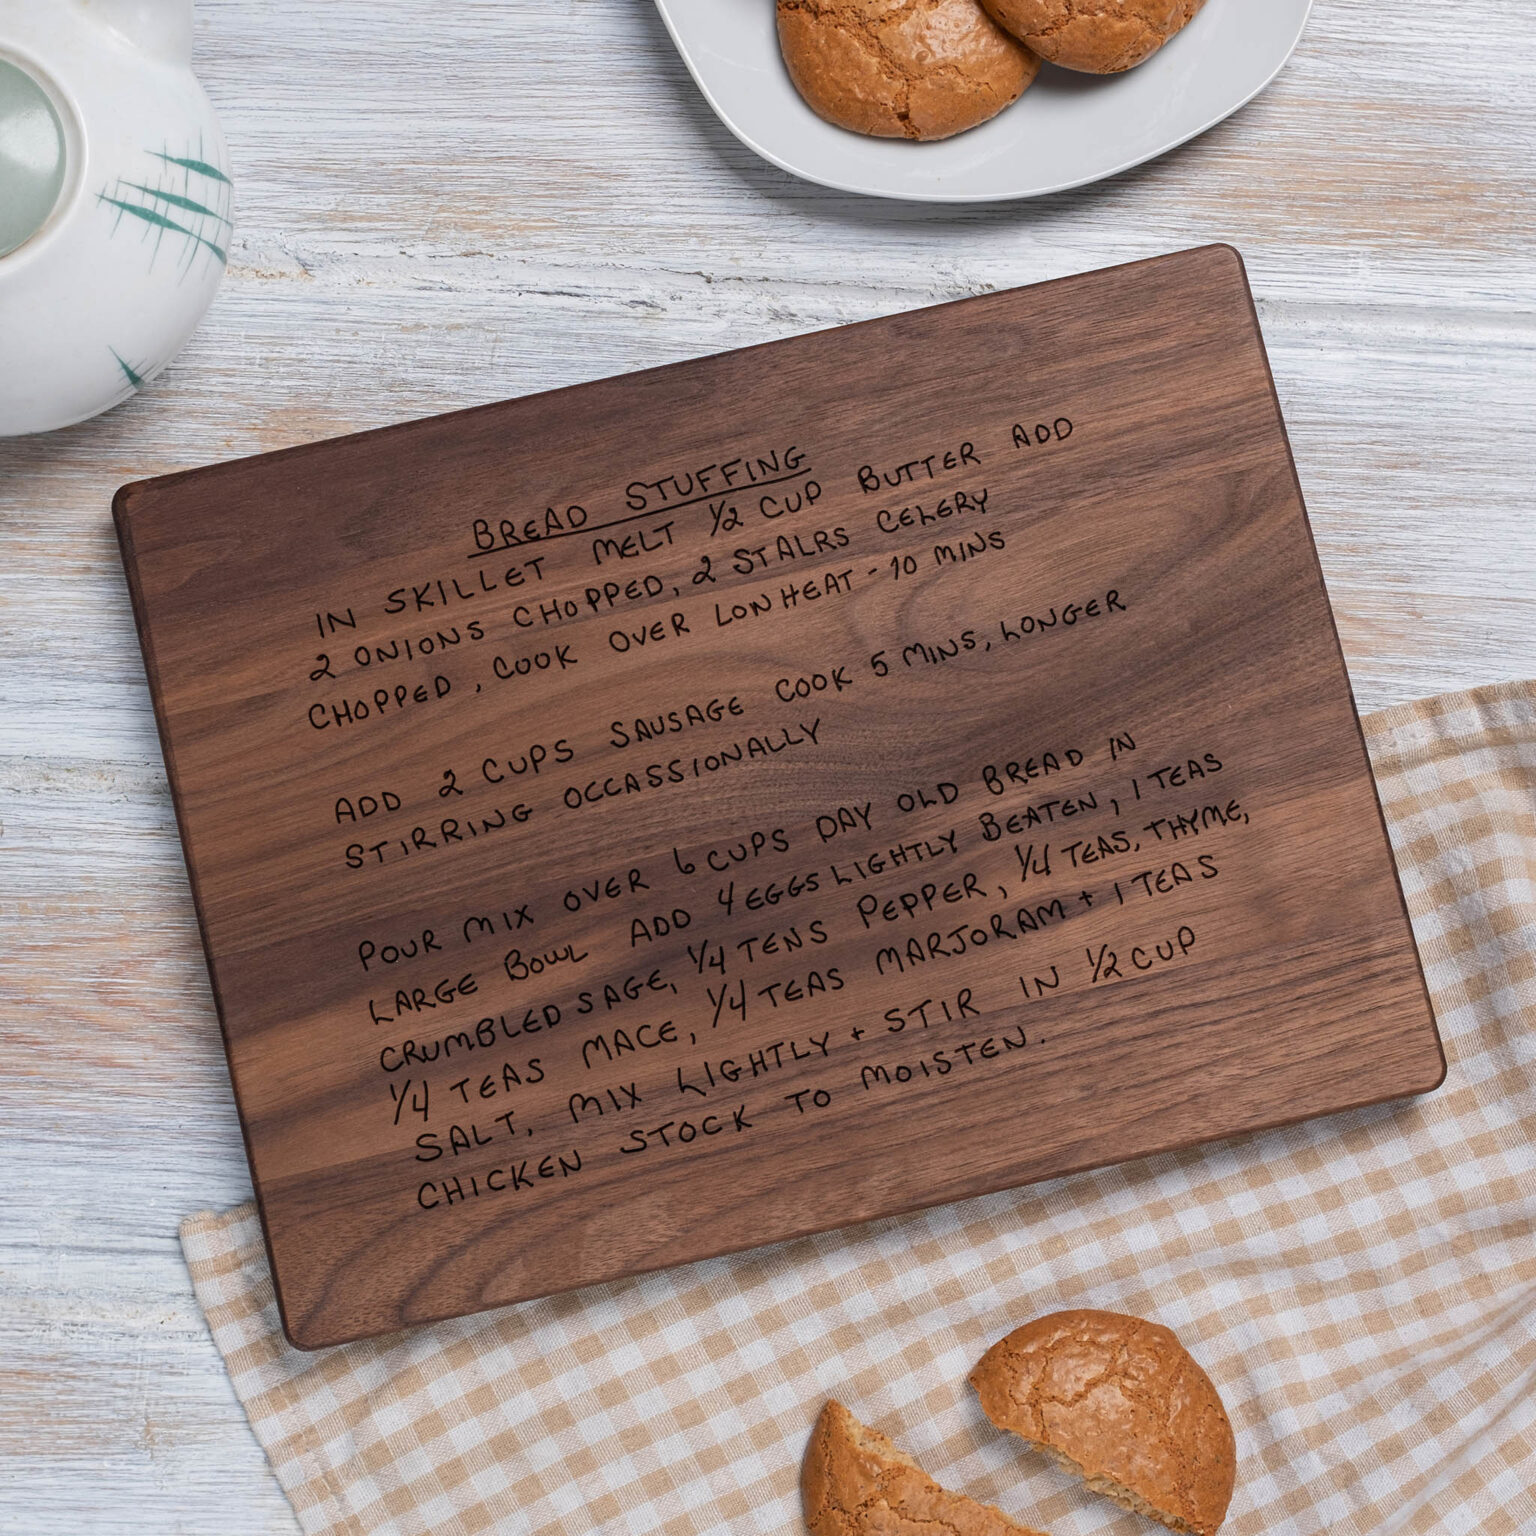 BREAD STUFFING
IN SKILLET MELT 1/2 CUP BUTTER ADD
2 ONIONS CHOPPED, 2 STALRS CELERY
CHOPPED, COOK OVER LOW HEAT - 10 MINS
ADD 2 CUPS SAUSAGE COOK 5 MINS, LONGER
STIRRING OCCASSIONALLY
POUR MIX OVER 6 CUPS DAY OLD BREAD IN
LARGE BOWL ADD 4 EGGS LIGHTLY BEATEN, 1 TEAS
CRUMBLED SAGE, 1/4 TENS PEPPER, 1/4 TEAS, THYME,
1/4 TEAS MACE, 1/4 TEAS MARJORAM + 1 TEAS
SALT, MIX LIGHTLY + STIR IN 1/2 CUP
CHICKEN STOCK TO MOISTEN.